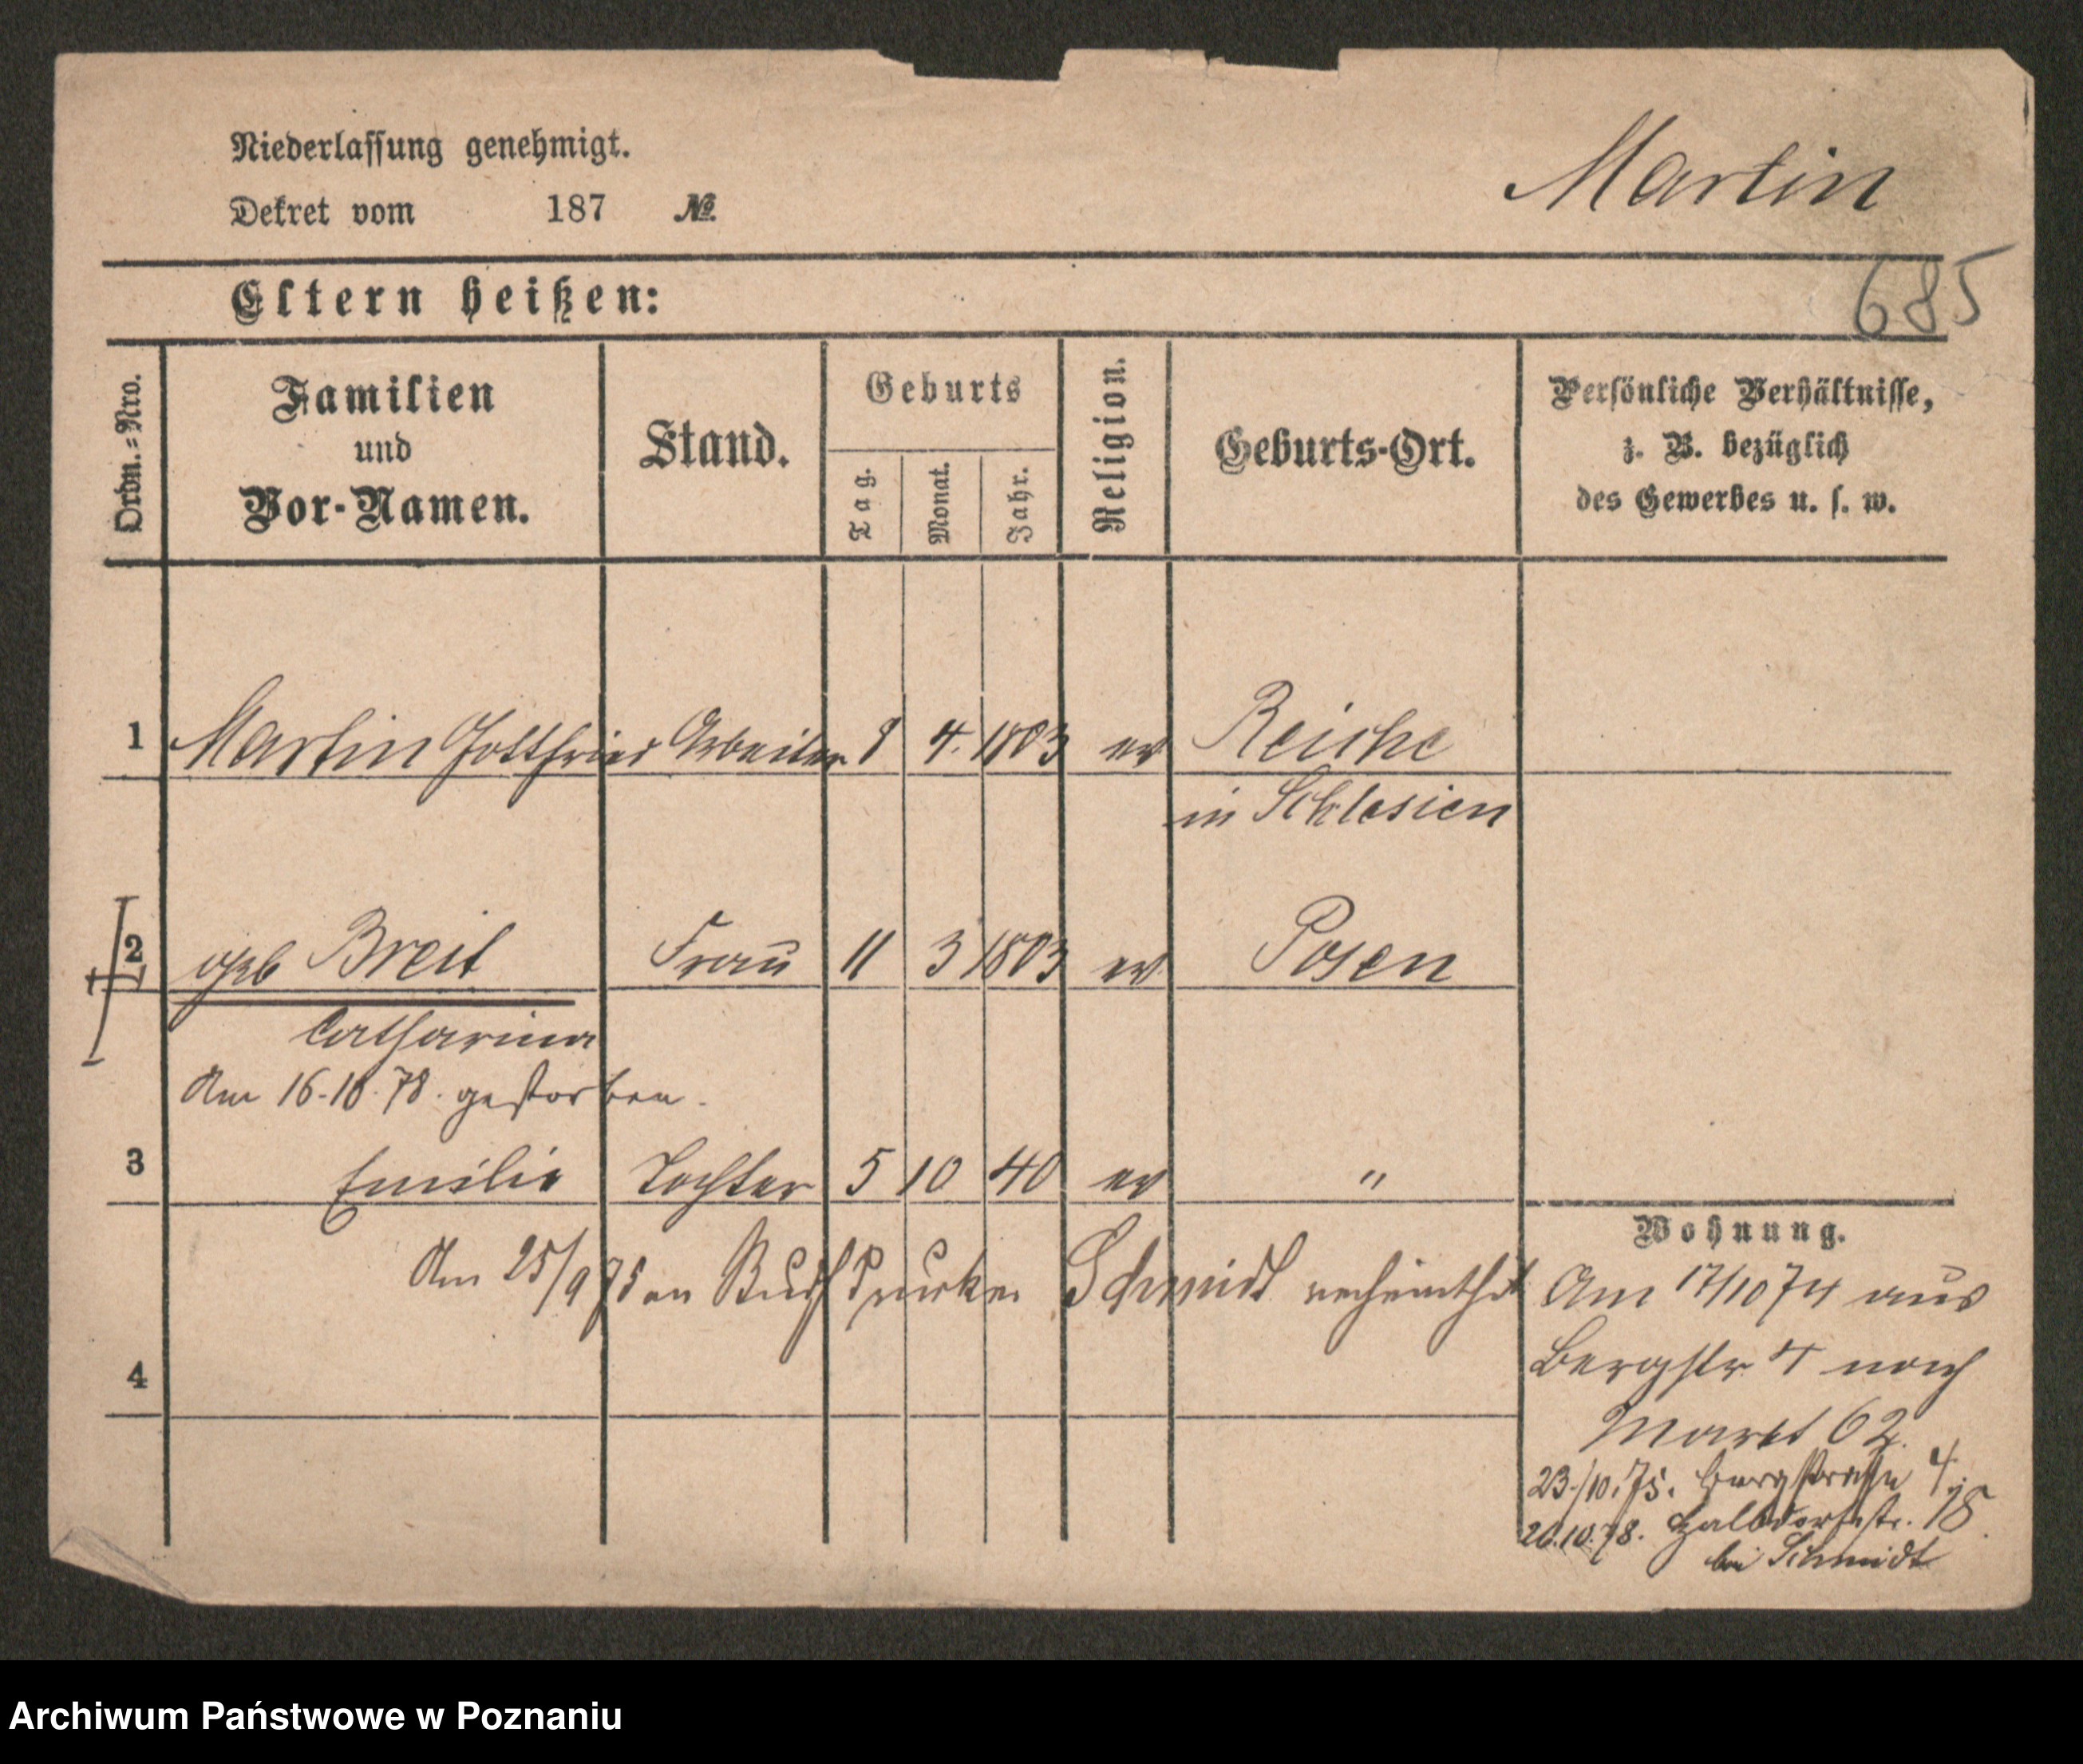 Niederlassung genehmigt.
Martin
Dekret vom 187 №
685
Eltern heißen:
Ordn.=Nro.
Familien
und
Vor-Namen.
Stand.
Geburts
Tag.
Monat.
Jahr.
Religion.
Geburts-Ort.
Persönliche Verhältnisse,
z. B. bezüglich
des Gewerbes u. s. w.
1 Martin Gottfried Arbeiter 8 4. 1803 ev Reiche
in Schlesien
2 geb Breit Frau 11 3 1803 ev Posen
Catharina
Am 16.10.78. gestorben.
3 Emilie Tochter 5 10 40 ev "
Am 25/9 75 an Buchdrucker Schmidt verheirathet
4
Wohnung.
Am 17/10 74 aus
Bergstr 4 nach
Markt 62.
23./10.75. Bergstraße 4.
20.10.78. Halbdorfstr. 18.
bei Schmidt
Archiwum Państwowe w Poznaniu